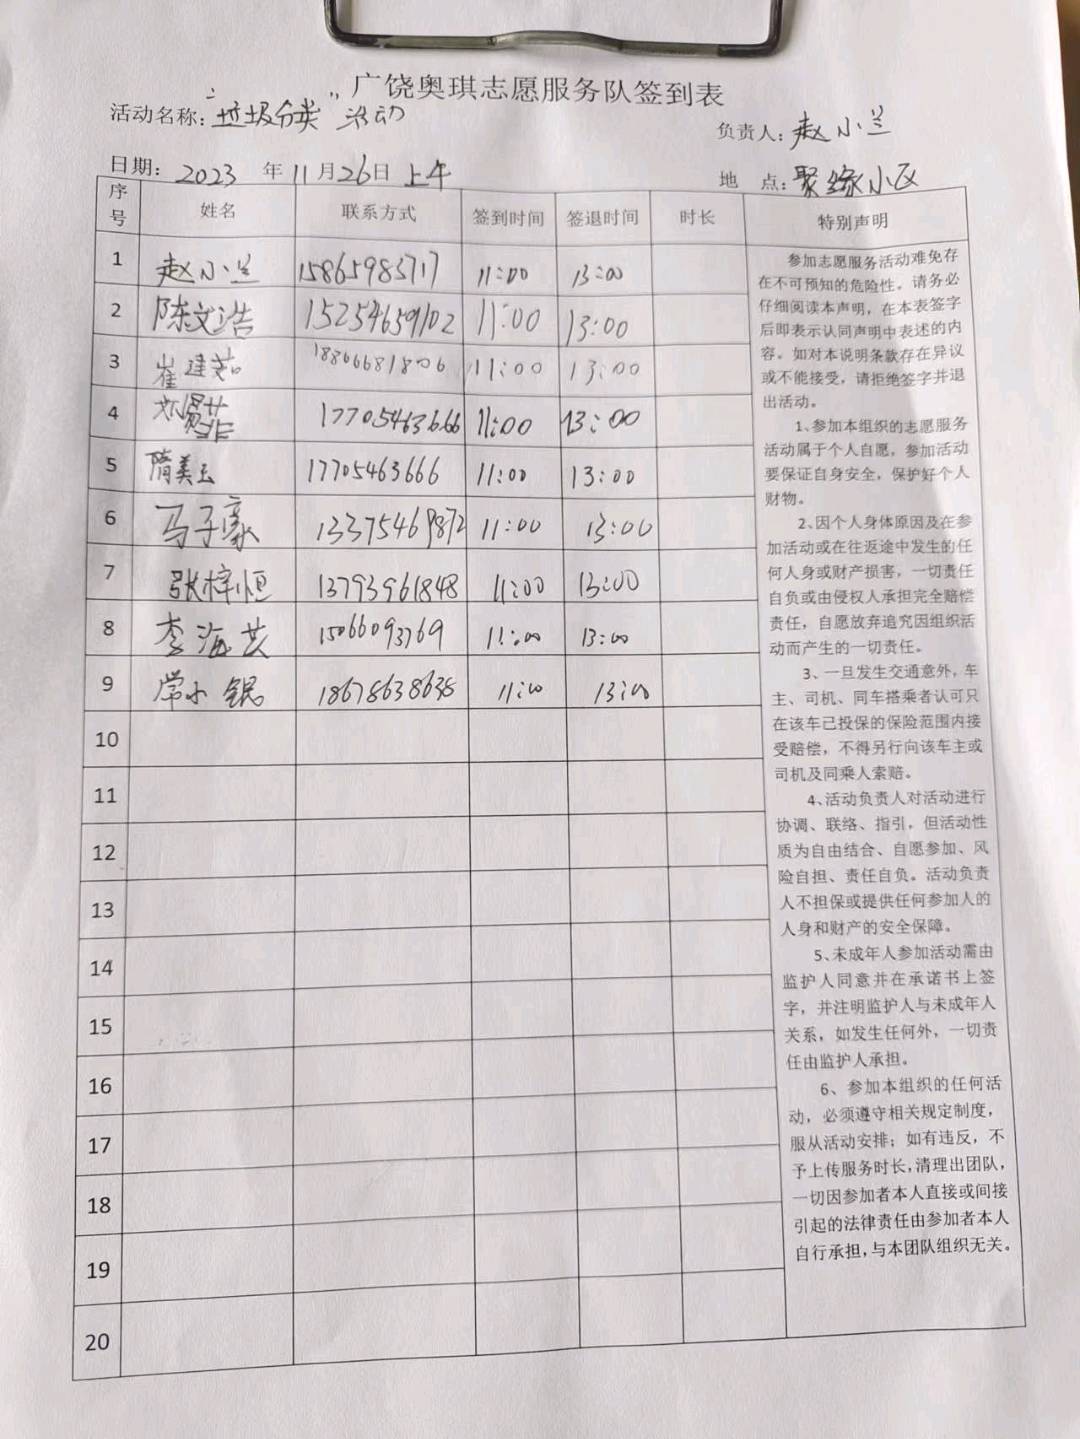 广饶奥琪志愿服务队签到表
活动名称：“垃圾分类”活动
负责人：赵小兰
日期：2023年11月26日上午
地 点：聚缘小区
序号 姓名 联系方式 签到时间 签退时间 时长 特别声明
1 赵小兰 15865983717 11:00 13:00
2 陈文浩 15254659102 11:00 13:00
3 崔建茹 18866681806 11:00 13:00
4 17705463666 11:00 13:00
5 隋美玉 17705463666 11:00 13:00
6 马子豪 13375469872 11:00 13:00
7 张梓恒 13793961848 11:00 13:00
8 李海芸 15066093769 11:00 13:00
9 常小锟 18678638638 11:00 13:00
10
11
12
13
14
15
16
17
18
19
20
参加志愿服务活动难免存
在不可预知的危险性。请务必
仔细阅读本声明，在本表签字
后即表示认同声明中表述的内
容。如对本说明条款存在异议
或不能接受，请拒绝签字并退
出活动。
1、参加本组织的志愿服务
活动属于个人自愿，参加活动
要保证自身安全，保护好个人
财物。
2、因个人身体原因及在参
加活动或在往返途中发生的任
何人身或财产损害，一切责任
自负或由侵权人承担完全赔偿
责任，自愿放弃追究因组织活
动而产生的一切责任。
3、一旦发生交通意外，车
主、司机、同车搭乘者认可只
在该车已投保的保险范围内接
受赔偿，不得另行向该车主或
司机及同乘人索赔。
4、活动负责人对活动进行
协调、联络、指引，但活动性
质为自由结合、自愿参加、风
险自担、责任自负。活动负责
人不担保或提供任何参加人的
人身和财产的安全保障。
5、未成年人参加活动需由
监护人同意并在承诺书上签
字，并注明监护人与未成年人
关系，如发生任何外，一切责
任由监护人承担。
6、参加本组织的任何活
动，必须遵守相关规定制度，
服从活动安排；如有违反，不
予上传服务时长，清理出团队，
一切因参加者本人直接或间接
引起的法律责任由参加者本人
自行承担，与本团队组织无关。